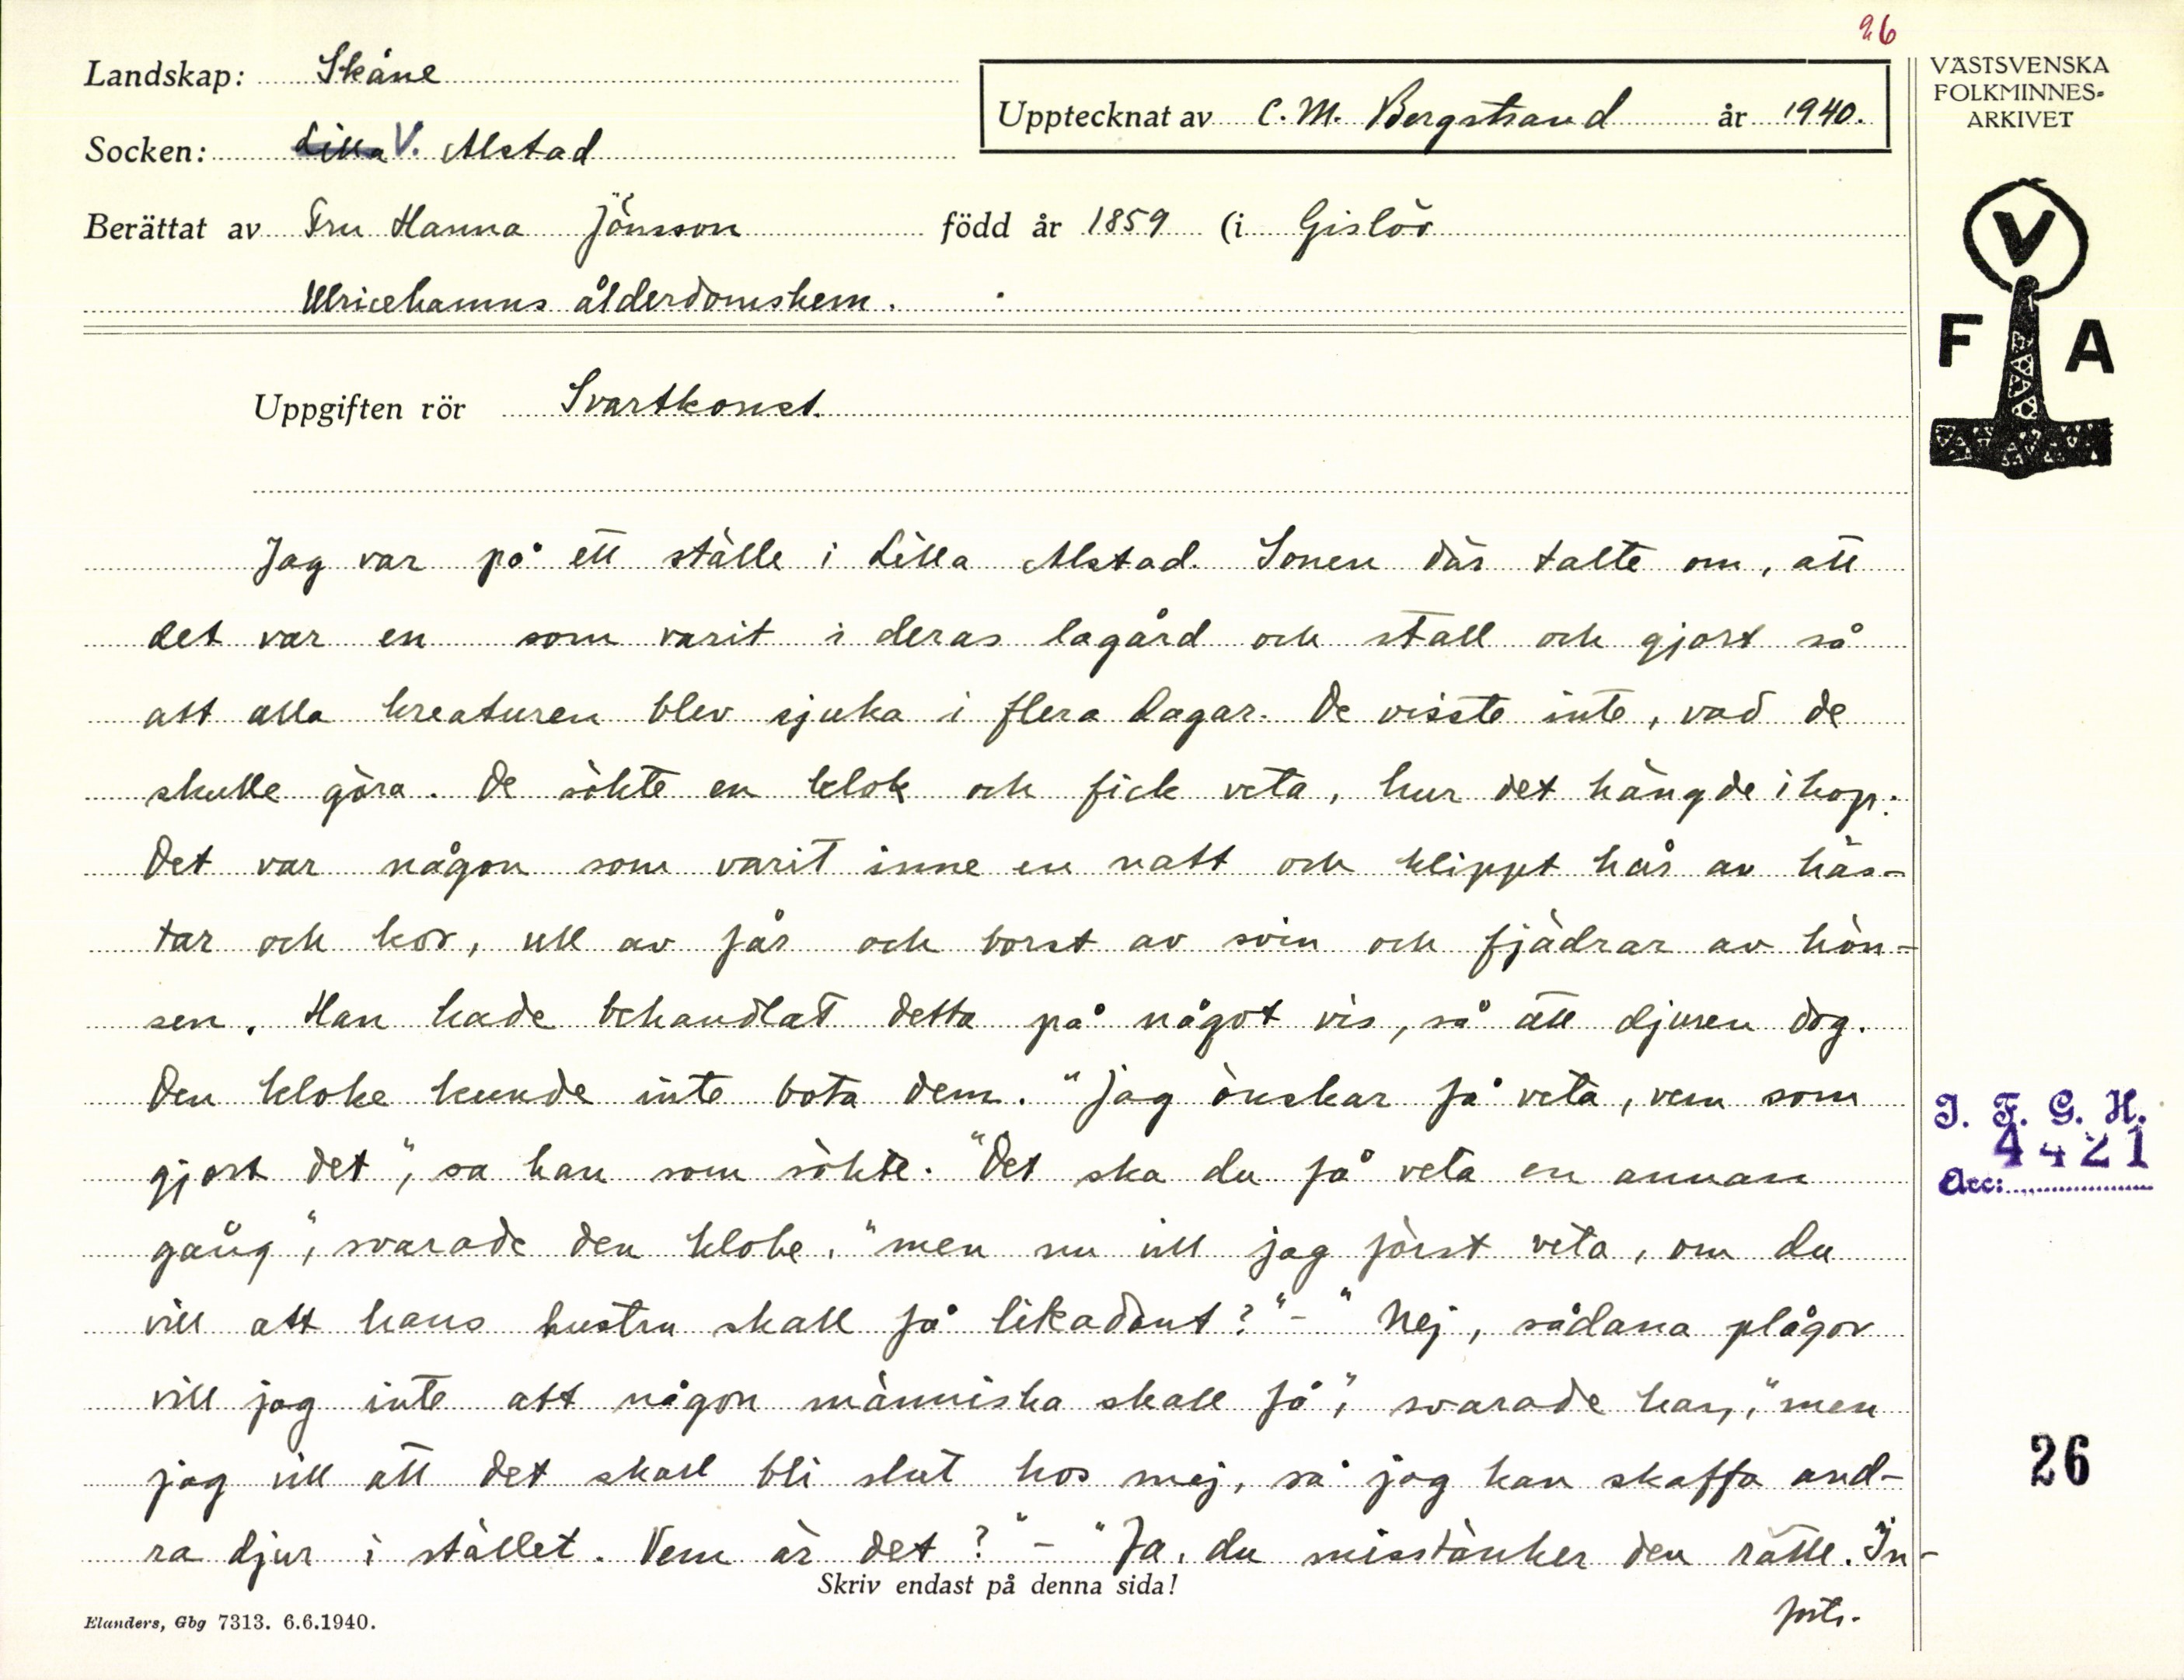 26
Landskap: Skåne
Upptecknat av C. M. Bergstrand år 1940.
VÄSTSVENSKA
FOLKMINNES-
ARKIVET
Socken: Lilla V. Alstad
Berättat av Fru Hanna Jönsson född år 1859 (i Gislöv
Ulricehamns ålderdomshem.
V
F A
Uppgiften rör Svartkonst.
Jag var på ett ställe i Lilla Alstad. Sonen där talte om, att
det var en som varit i deras lagård och stall och gjort så
att alla kreaturen blev sjuka i flera dagar. De visste inte, vad de
skulle göra. De sökte en klok och fick veta, hur det hängde ihop:
Det var någon som varit inne en natt och klippt hår av häs-
tar och kor, ull av får och borst av svin och fjädrar av hön-
sen. Han hade behandlat detta på något vis, så att djuren dog.
Den kloke kunde inte bota dem. "Jag önskar få veta, vem som
gjort det", sa han som sökte. "Det ska du få veta en annan
gång", svarade den kloke, "men nu vill jag först veta, om du
vill att hans hustru skall få likadant?" - "Nej, sådana plågor
vill jag inte att någon människa skall få", svarade han, "men
jag vill att det skall bli slut hos mej, så jag kan skaffa and-
ra djur i stället. Vem är det?" - "Ja, du misstänker den rätte. In-
forts.
I. F. G. H.
4421
Acc:
26
Skriv endast på denna sida!
Elanders, Gbg 7313. 6.6.1940.